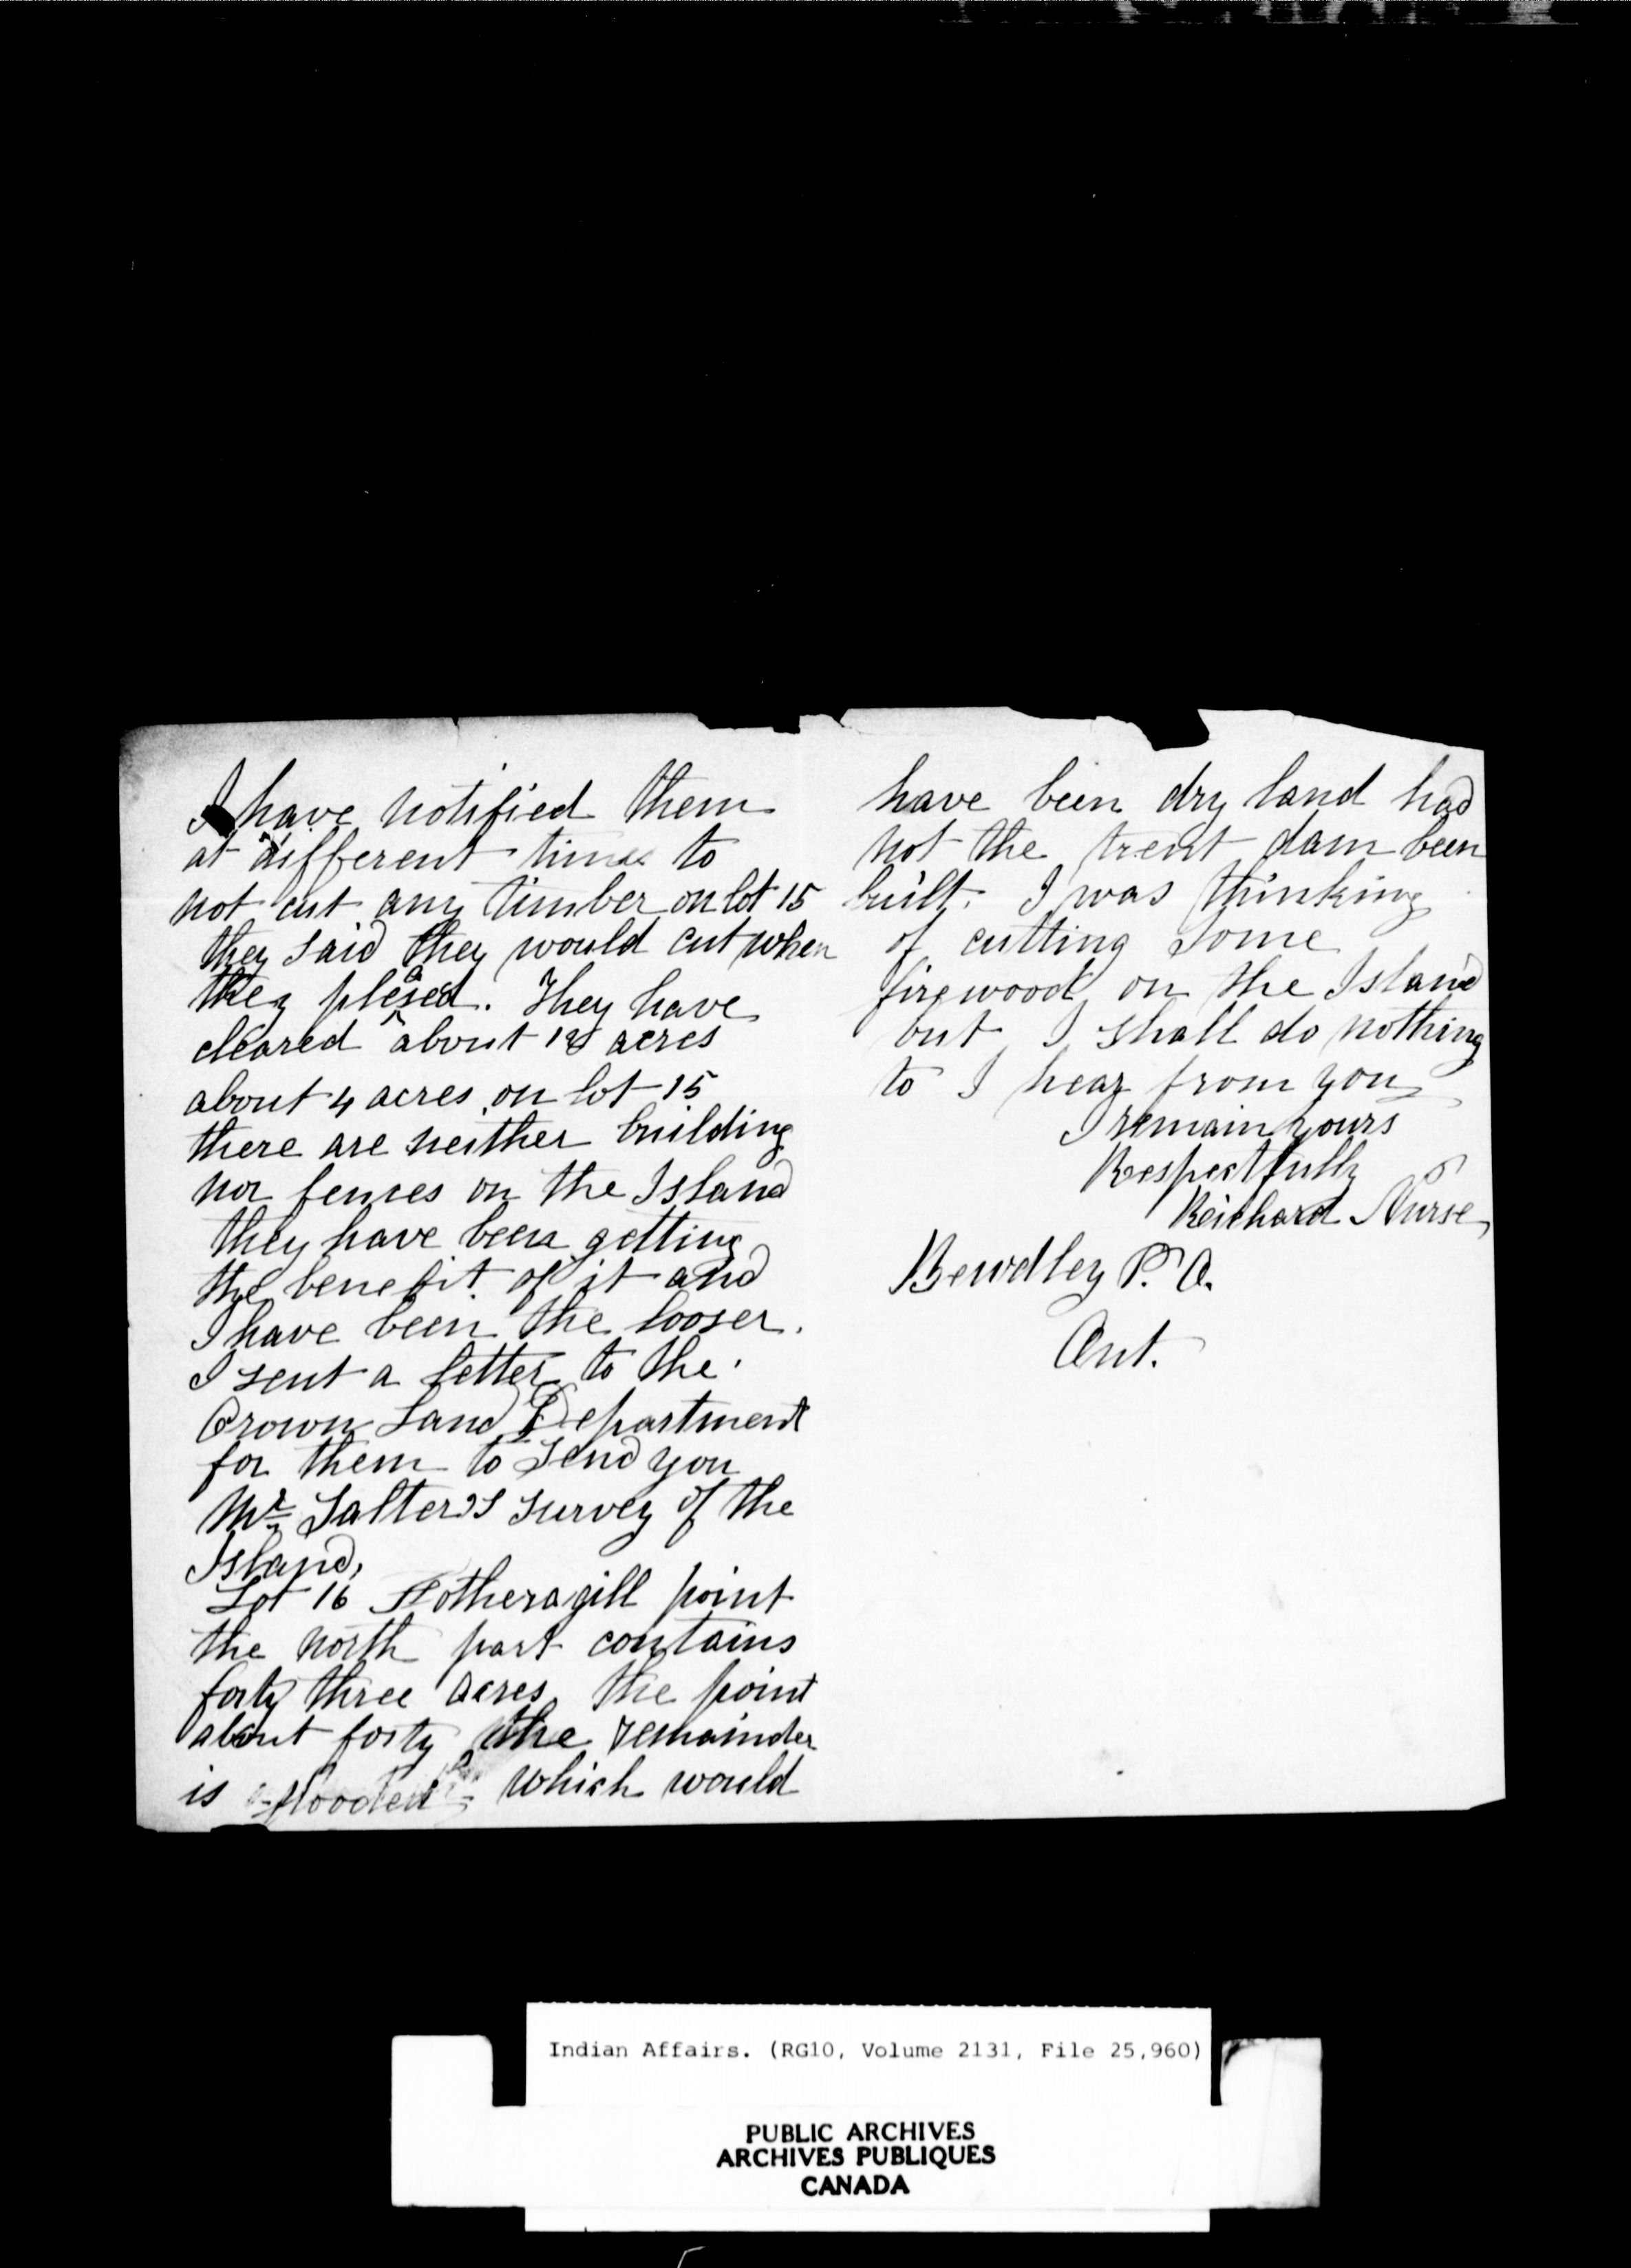 I have notified them
at different times to
not cut any timber on lot 15
they said they would cut when
they pleased. They have
cleared about acres
about 4 acres on lot 15
there are neither building
nor fences on the Island
they have been getting
the benefit of it and
I have been the looser.
I sent a letter to the
Crown Land Department
for them to send you
Mr Salter's survey of the
Island,
Lot 16 Fotheragill point
the north part contains
forty three acres the point
about forty the remainder
is flooded which would
have been dry land had
not the trent dam been
built. I was thinking
of cutting some
firewood on the Island
but I shall do nothing
to I hear from you
I remain yours
Respectfully
Reichard Nurse
Bewdley P. O.
Ont.
Indian Affairs. (RG10, Volume 2131, File 25,960)
PUBLIC ARCHIVES
ARCHIVES PUBLIQUES
CANADA